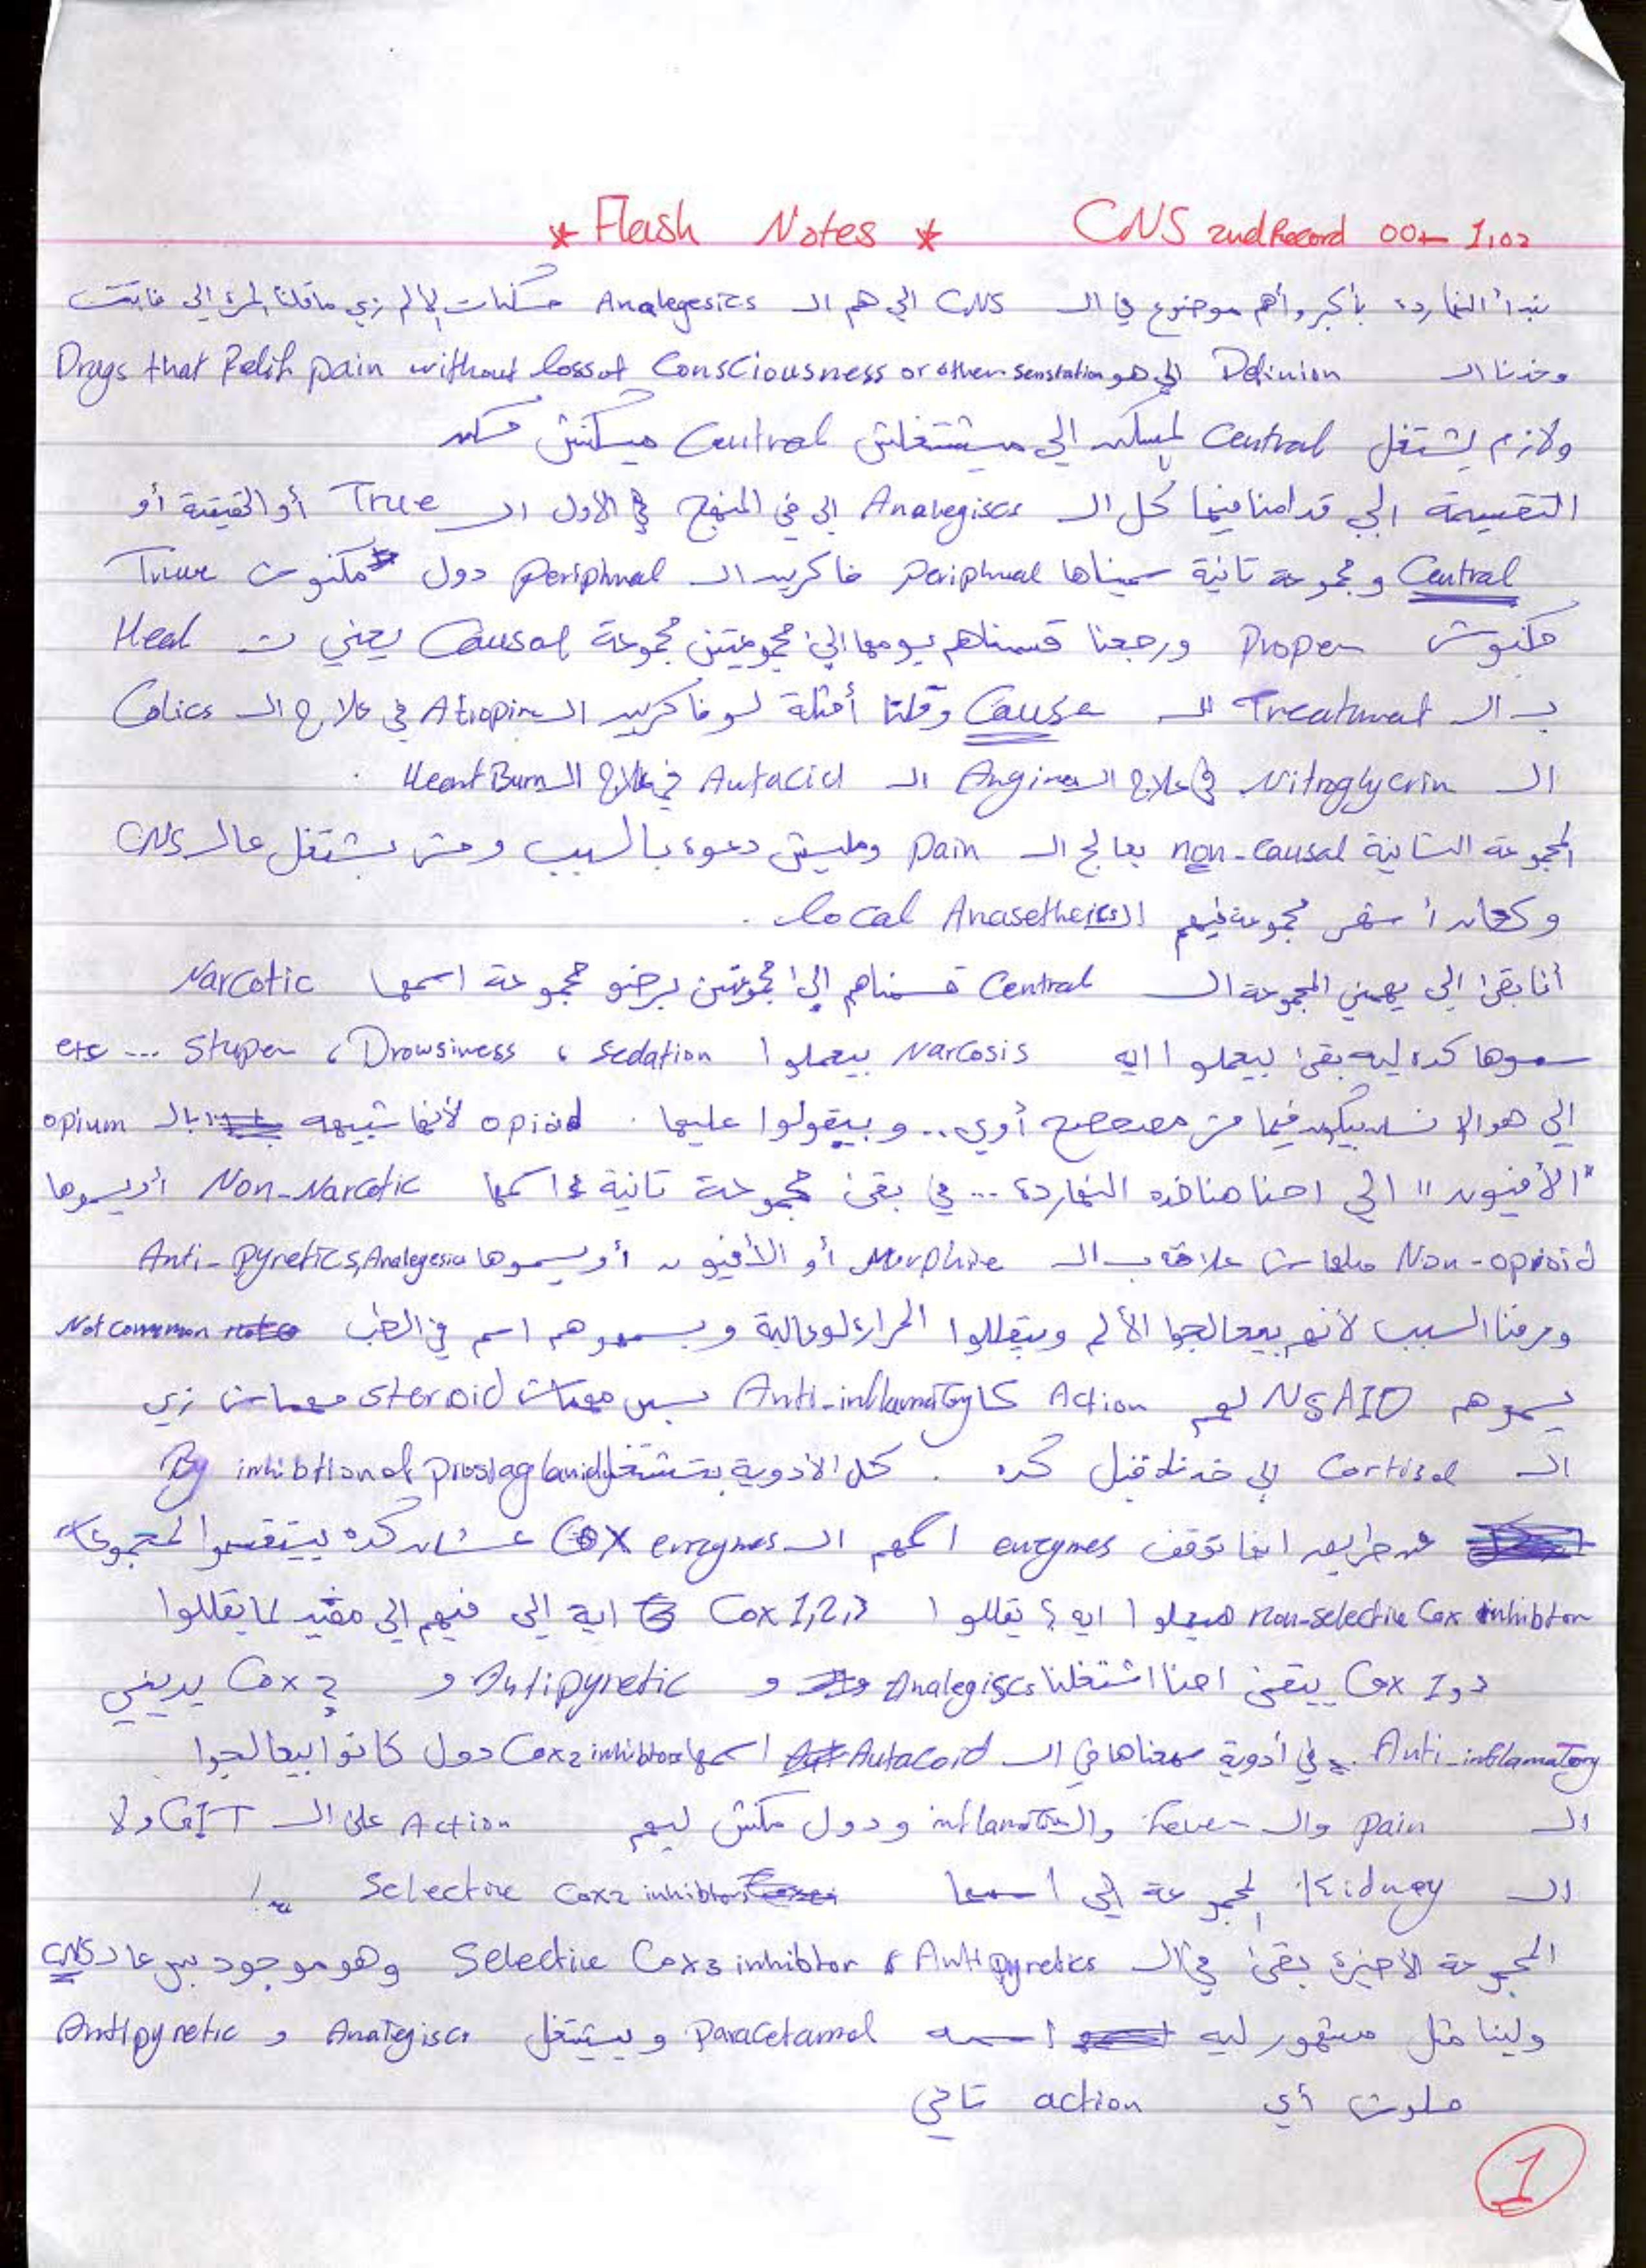 * Flash Notes * CNS 2nd Record 00 → 1,02
نبدأ النهاردة بأكبر وأهم موضوع في ال CNS الي هم ال Analegesics مسكنات الألم زي ماقلنا المرة الي فاتت
وخدنا ال Definion الي هو Drugs that Relif pain without loss of Consciousness or other senstation
ولازم يشتغل Central المسكن الي مبيشتغلش Central ميبقاش مسكن
التقسيمة الي قدامنا فيها كل ال Analegiscs الي في المنهج في الأول ال True أو الحقيقة أو
Central ومجموعة تانية سميناها periphral فاكرين ال periphral دول مكنوش True
مكنوش Proper ورجعنا قسمناهم يومها إلى مجموعتين مجموعة Causal يعني ت Heal
ب ال Treatment لل Cause وقلنا أمثلة لو فاكرين ال Atropin في علاج ال Colics
ال Nitroglycrin في علاج ال Angina ال Antacid في علاج ال Heart Burn .
المجموعة التانية non-causal بعالج ال pain ومليش دعوة بالسبب ومش بشتغل عال CNS
وكان أشهر مجموعة فيهم ال local Anasetheics .
أنا بقى الي يهمني المجموعة ال Central قسمناهم إلى مجموعتين برضو مجموعة اسمها Narcotic
سموها كده ليه بقى بيعملوا ايه Narcosis بيعملوا sedation ، Drowsiness ، Stuper ... etc
الي هو الإنسان بيكون فيها مش مصحصح أوي .. وبيقولوا عليها opioid . لأنها شبيهه بال opium
"الأفيون" الي احنا هناخده النهاردة ... في بقى مجموعة تانية اسمها Non-Narcotic أو يسموها
Non-opioid ملهاش علاقة ب ال Morphine أو الأفيون أو يسموها Anti-pyretics, Analegesia
وعرفنا السبب لأنهم بيعالجوا الألم وبيقللوا الحرارة لو عالية وبيسموهم اسم في الطب Not common
يسموهم NSAID لهم Action كا Anti-inflamatory بس مهماش steroid مهماش زي
ال Cortisol الي خدناه قبل كده . كل الأدوية بتشتغل By inhibtion of prostaglanid
عن طريق انها توقف enzymes اسمهم ال COX enzymes عشان كده بيتقسموا لمجموعات
non-selective Cox inhibton هيعملوا ايه ؟ يقللوا Cox 1,2,3 ايه الي فيهم الي مفيد لما يقللوا
Cox 1 و 3 يبقى احنا اشتغلنا Analegiscs و Antipyretic و Cox 2 يديني
Anti-inflamatory . في أدوية سمعناها في ال Autacoid اسمها Cox2 inhibtors دول كانوا بيعالجوا
ال pain وال Fever وال inflamation ودول مكنش ليهم Action على ال GIT ولا
ال Kidney المجموعة الي اسمها Selective Cox2 inhibtors !
المجموعة الأخيرة بقى في ال Antipyretics ، Selective Cox3 inhibtor وهو موجود بس عال CNS
ولينا مثل مشهور ليه اسمه paracetamol وبيشتغل Analegiscs و Antipyretic
ملوش أي action تاني
1